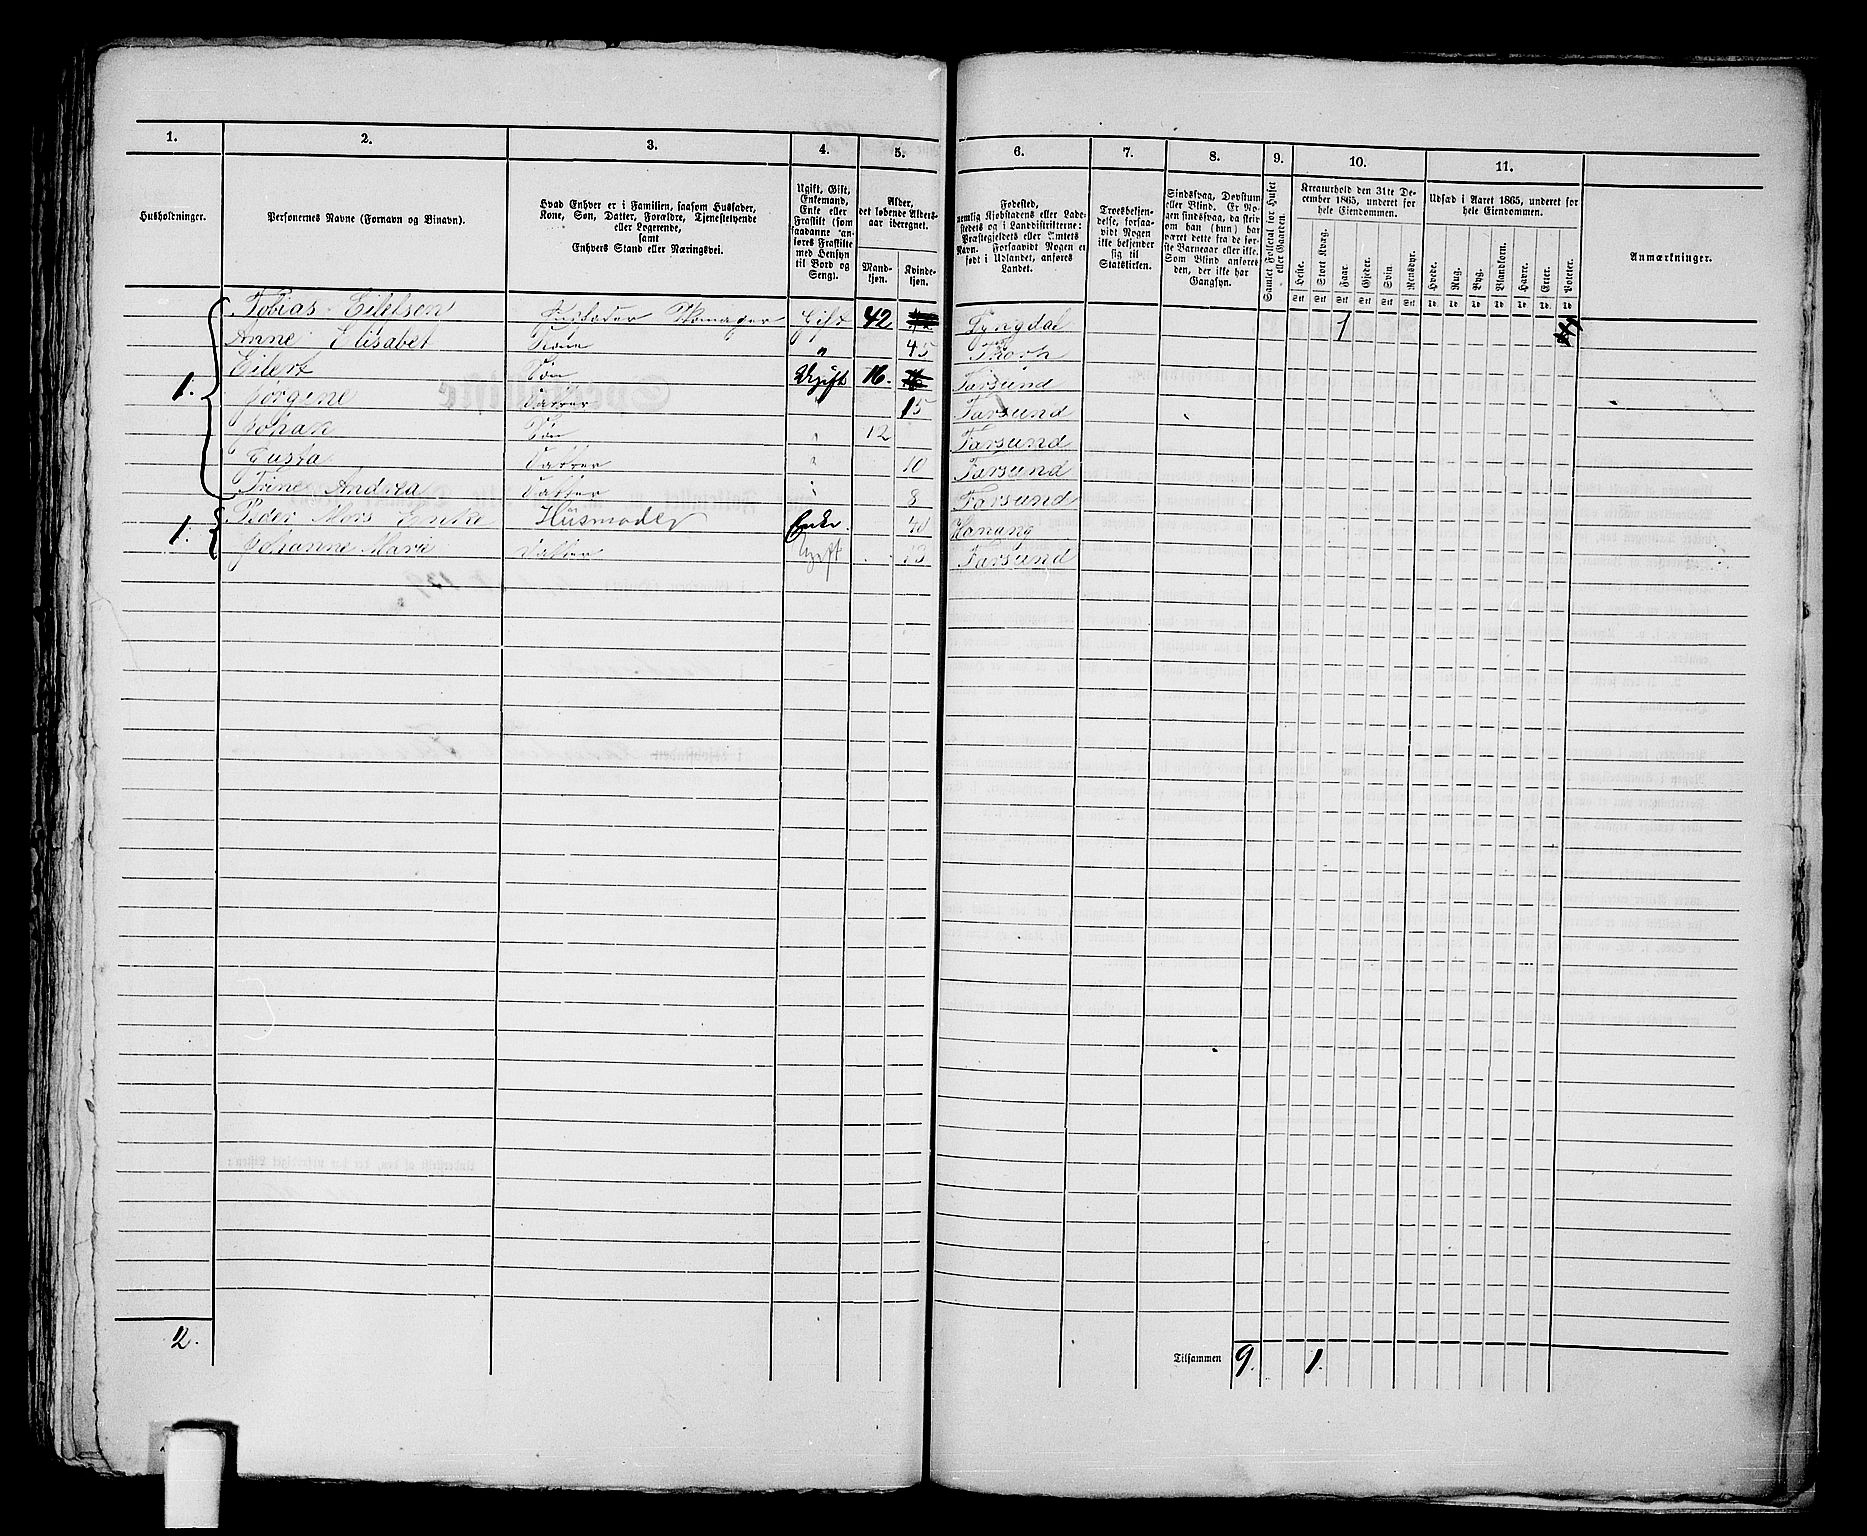 1. 2. 3. 4. 5. 6. 7. 8. 9. 10. 11.
Husholdninger.
Personernes Navne (Fornavn og Binavn).
Hvad Enhver er i Familien, saasom Husfader,
Kone, Søn, Datter, Forældre, Tjenestetyende
eller Logerende,
samt
Enhvers Stand eller Næringsvei.
Ugift, Gift,
Enkemand,
Enke eller
Fraskilt (som
saadanne an-
føres Fraskilte
med Hensyn
til Bord og
Seng).
Alder,
det løbende Alders-
aar iberegnet.
Mand-
kjøn.
Kvinde-
kjøn.
Fødested,
nemlig Kjøbstadens eller Lade-
stedets og i Landdistrikterne:
Præstegjeldets eller Amtets
Navn. Forsaavidt Nogen er
født i Udlandet, anføres
Landet.
Troesbekjen-
delse, forsaa-
vidt Nogen
ikke bekjender
sig til
Statskirken.
Sindssvag, Døvstum
eller Blind. Er No-
gen sindssvag, da skriv
om han (hun) har
været dette fra de før-
ste Barneaar eller ikke.
Som Blind anføres
den, der ikke har
Gangsyn.
Samlet Folketal for Huset
eller Gaarden.
Kreaturhold den 31te De-
cember 1865, underet for
hele Eiendommen.
Heste. Stort Kvæg. Faar. Gjeder. Svin. Rensdyr.
Udsæd i Aaret 1865, underet for
hele Eiendommen.
Hvede. Rug. Byg. Blandkorn. Havre. Erter. Poteter.
Anmærkninger.
Tobias Eilelsen Husfader Gift 42 Lyngdal 1
Anne Elisabet Kone " 45
Eilert Søn Ugift 16. Farsund
1. Jørgine Datter 15 Farsund
Johan Søn 12 Farsund
Gusta Datter 10 Farsund
Trine Andrea Datter 8 Farsund
Peder Mors Enke Husmoder Enke. 40
1. Johanne Marie Datter Ugift 13 Farsund
2.
Tilsammen 9. 1.